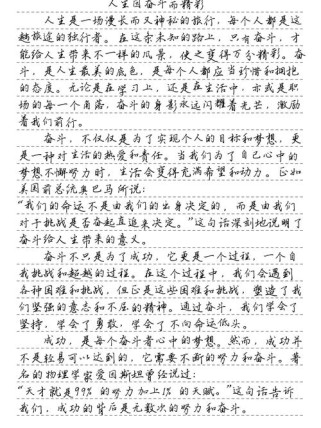 人生因奋斗而精彩
人生是一场漫长而又神秘的旅行，每个人都是这
趟旅途的独行者。在这条未知的路上，只有奋斗，才
能给人生带来不一样的风景，使之变得万分精彩。奋
斗，是人生最美的底色，是每个人都应当珍惜和拥抱
的态度。无论是在学习上，还是在生活中，亦或是职
场的每一个角落，奋斗的身影永远闪耀着光芒，激励
着我们前行。
奋斗，不仅仅是为了实现个人的目标和梦想，更
是一种对生活的热爱和责任。当我们为了自己心中的
梦想不懈努力时，生活会变得充满希望和动力。正如
美国前总统奥巴马所说：
“我们的命运不是由我们的出身决定的，而是由我们
对于挑战是否奋起直追来决定。”这句话深刻地说明了
奋斗给人生带来的意义。
奋斗不只是为了成功，它更是一个过程，一个自
我挑战和超越的过程。在这个过程中，我们会遇到
各种困难和挑战，但正是这些困难和挑战，塑造了我
们坚强的意志和不屈的精神。通过奋斗，我们学会了
坚持，学会了勇敢，学会了不向命运低头。
成功，是每个奋斗者心中的梦想。然而，成功并
不是轻易可以达到的，它需要不断的努力和奋斗。著
名的物理学家爱因斯坦曾经说过：
“天才就是99%的努力加上1%的天赋。”这句话告诉
我们，成功的背后是无数次的努力和奋斗。